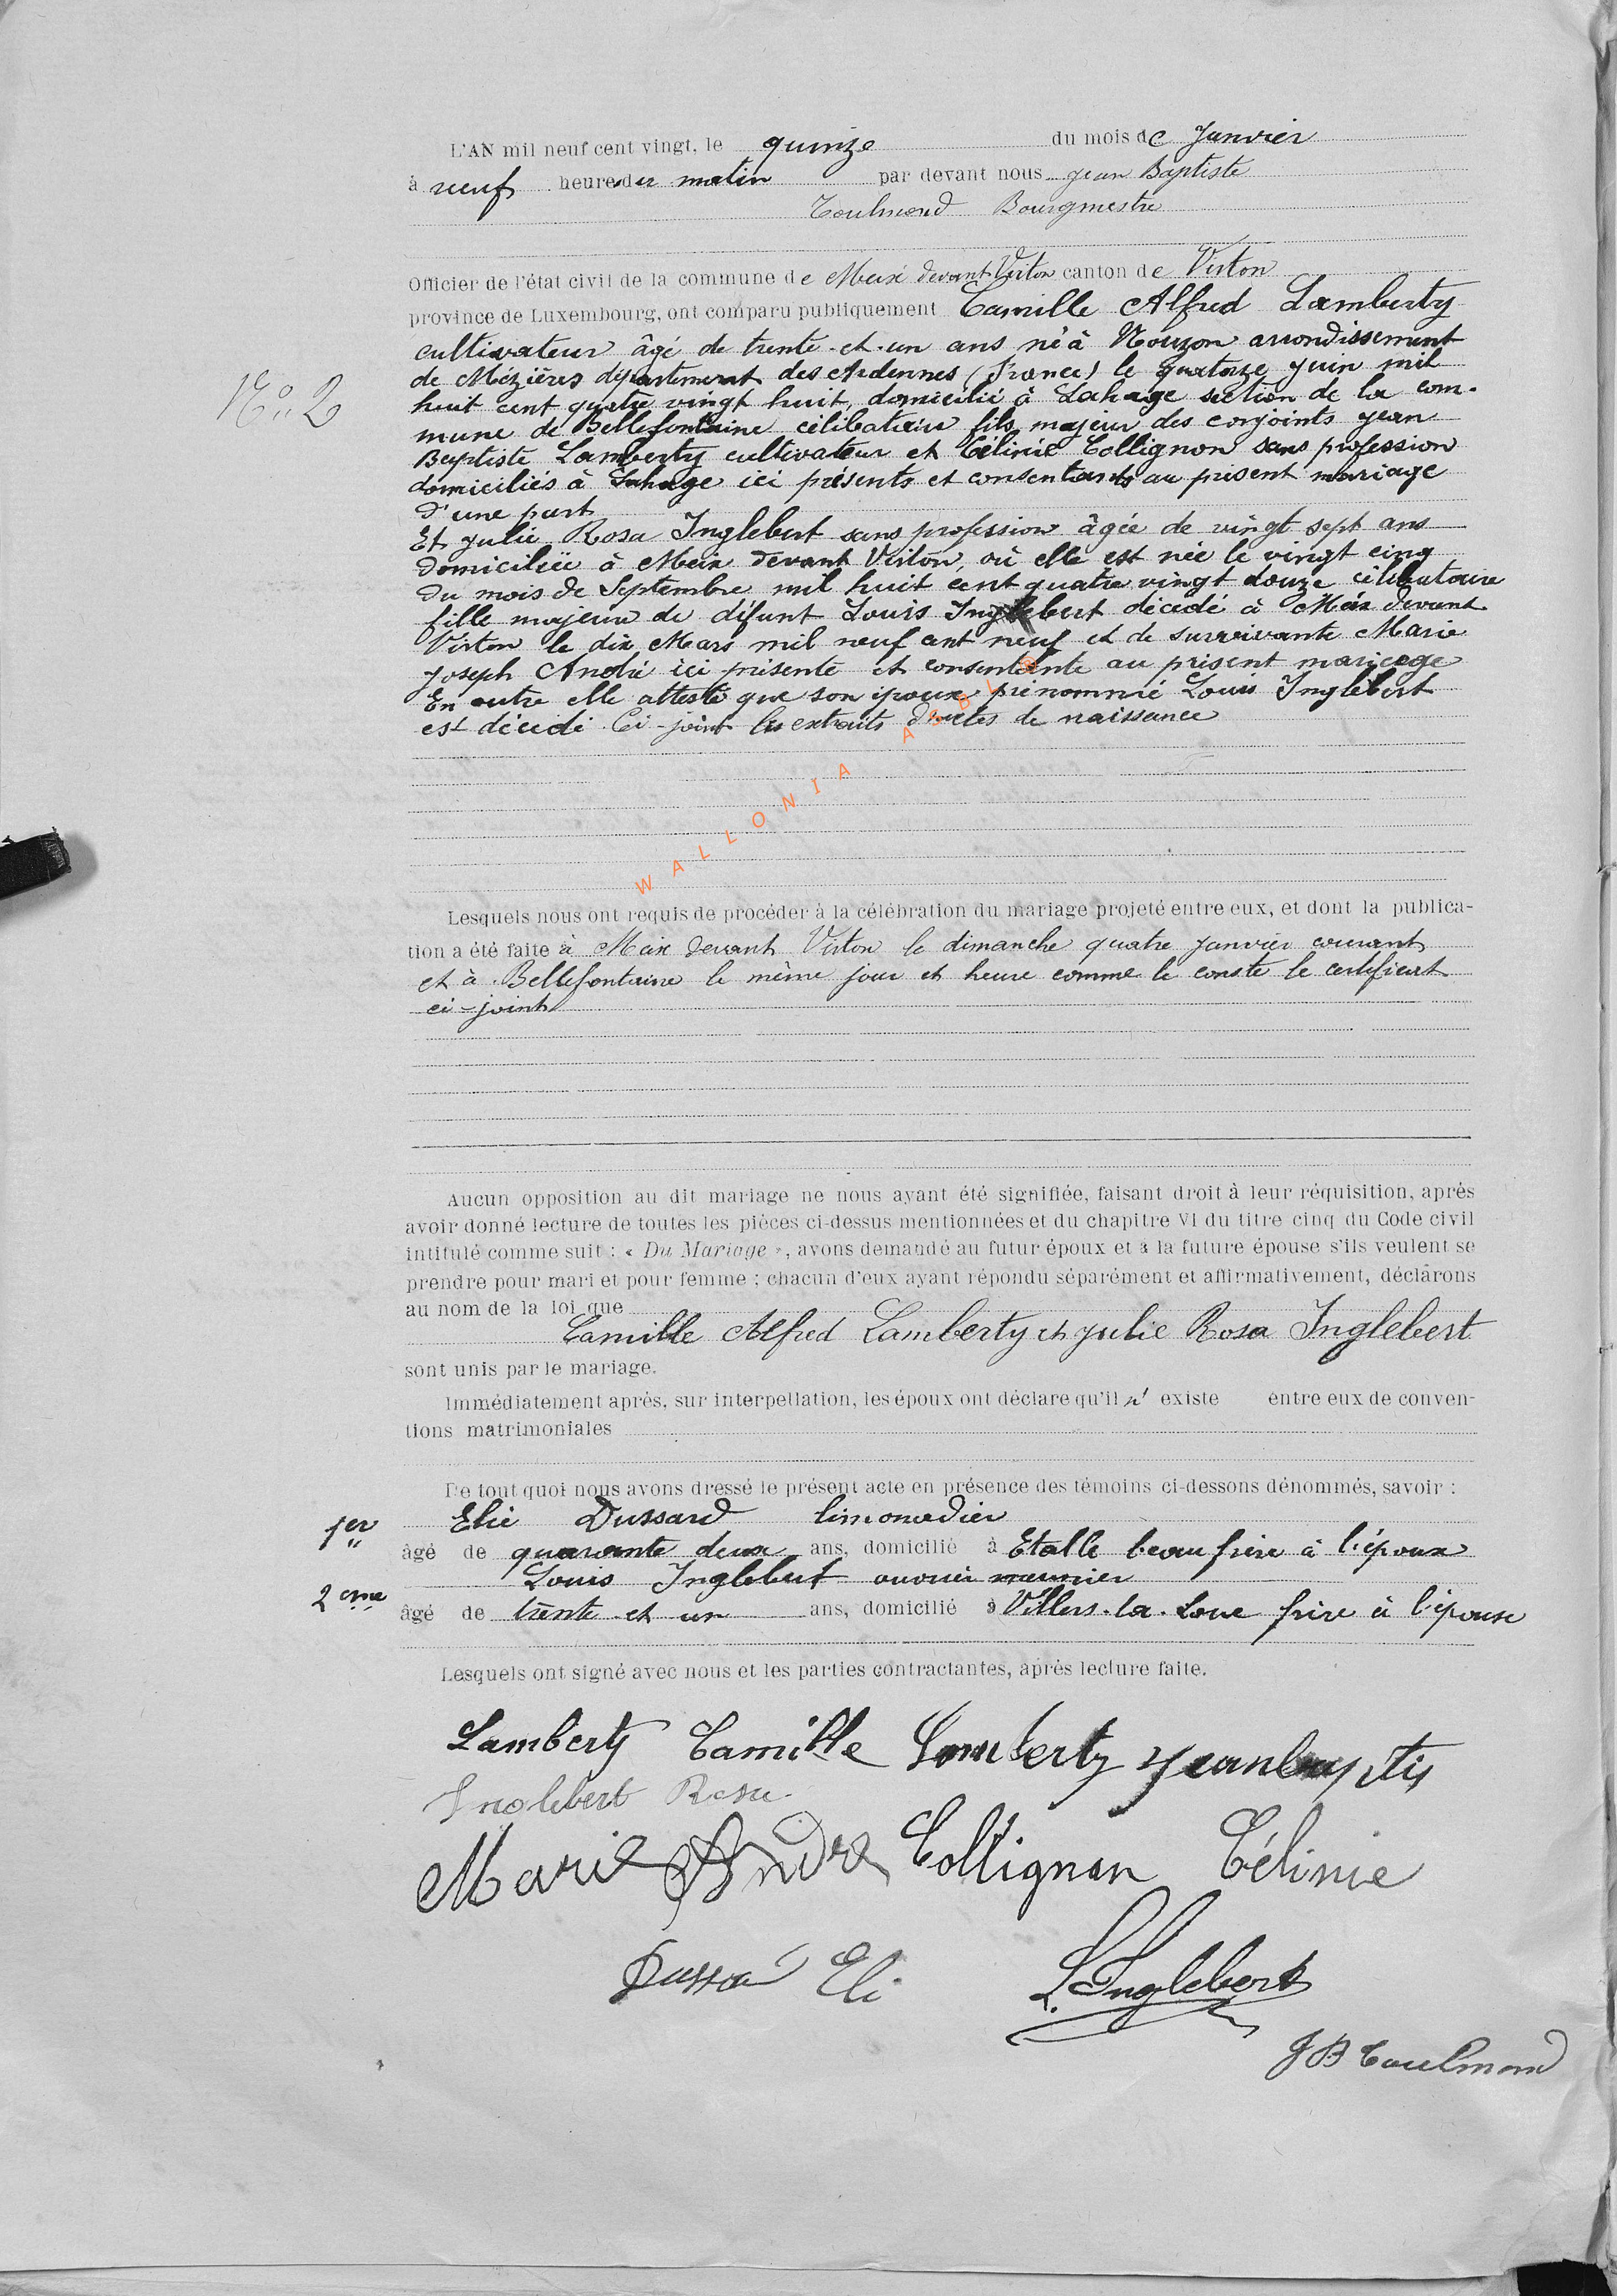 L'AN mil neuf cent vingt, le quinze du mois de Janvier
à neuf heures du matin par devant nous Jean Baptiste
Toulmond Bourgmestre
Officier de l'état civil de la commune de Meix devant Virton canton de Virton
province de Luxembourg, ont comparu publiquement Camille Alfred Lamberty
cultivateur âgé de trente-et-un ans né à Nouzon arrondissement
de Mézières département des Ardennes (France) le quatorze juin mil
N° 2
huit cent quatre vingt huit, domicilié à Lahage section de la com-
mune de Bellefontaine célibataire fils majeur des conjoints Jean
Baptiste Lamberty cultivateur et Célinie Collignon sans profession
domiciliés à Lahage ici présents et consentants au présent mariage
d'une part
Et Julie Rosa Inglebert sans profession âgée de vingt sept ans
domiciliée à Meix devant Virton, où elle est née le vingt cinq
du mois de Septembre mil huit cent quatre vingt douze célibataire
fille majeure de défunt Louis Inglebert décédé à Meix devant
Virton le dix Mars mil neuf cent neuf et de survivante Marie
Joseph André ici présente et consentante au présent mariage
En outre elle atteste que son époux prénommé Louis Inglebert
est décédé Ci-joint les extraits d'actes de naissance
WALLONIA ASBL ©
Lesquels nous ont requis de procéder à la célébration du mariage projeté entre eux, et dont la publica-
tion a été faite à Meix devant Virton le dimanche quatre Janvier courant
et à Bellefontaine le même jour et heure comme le conste le certificat
ci-joint
Aucun opposition au dit mariage ne nous ayant été signifiée, faisant droit à leur réquisition, après
avoir donné lecture de toutes les pièces ci-dessus mentionnées et du chapitre VI du titre cinq du Code civil
intitulé comme suit : « Du Mariage », avons demandé au futur époux et à la future épouse s'ils veulent se
prendre pour mari et pour femme ; chacun d'eux ayant répondu séparément et affirmativement, déclarons
au nom de la loi que
Camille Alfred Lamberty et Julie Rosa Inglebert
sont unis par le mariage.
Immédiatement après, sur interpellation, les époux ont déclaré qu'il n' existe entre eux de conven-
tions matrimoniales
De tout quoi nous avons dressé le présent acte en présence des témoins ci-dessons dénommés, savoir :
1er Elie Dussard limonadier
âgé de quarante deux ans, domicilié à Etalle beau frère à l'époux
2eme Louis Inglebert ouvrier meunier
âgé de trente et un ans, domicilié à Villers-la-Loue frère à l'épouse
Lesquels ont signé avec nous et les parties contractantes, après lecture faite.
Lamberty Camille Lamberty Jeanbaptis
Inglebert Rosa
Marie André Collignon Célinie
Dussa Eli L. Inglebert
JB Toulmond